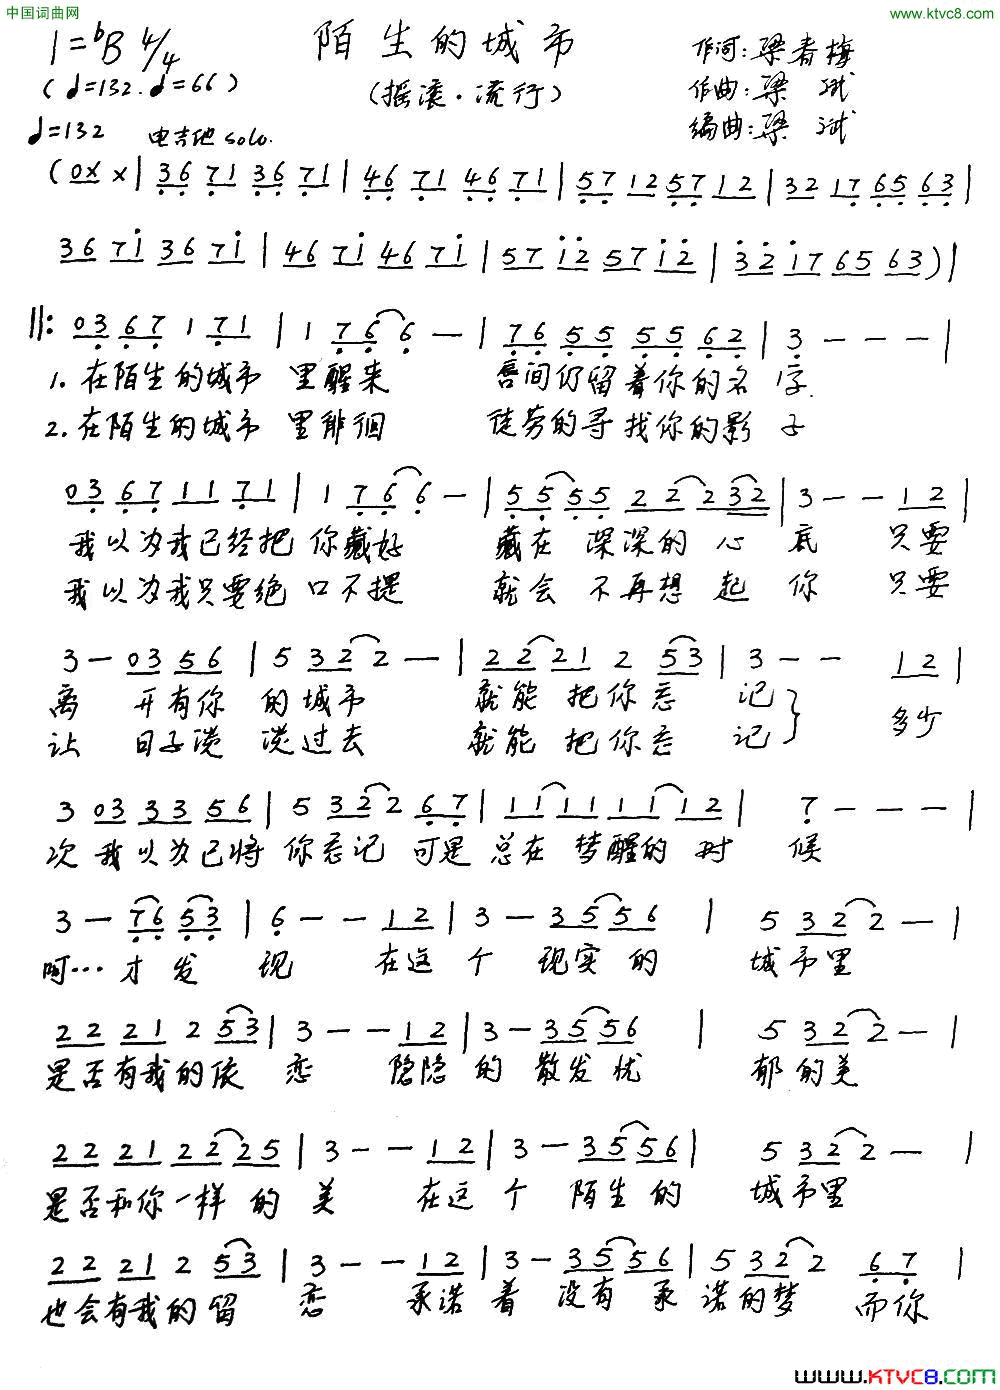 中国词曲网
www.ktvc8.com
1=♭B 4/4
陌生的城市
作词:梁春梅
(♩=132.♩=66)
(摇滚·流行)
作曲:梁斌
编曲:梁斌
♩=132 电吉他solo.
(0x x | 36 71 36 71 | 46 71 46 71 | 57 12 57 12 | 32 17 65 63 |
36 71 36 71 | 46 71 46 71 | 57 12 57 12 | 32 17 65 63) |
‖: 03 67 1 71 | 1 76 6 — | 76 55 55 62 | 3 - - - |
1. 在陌生的城市 里醒来 唇间仍留着你的名字.
2. 在陌生的城市 里徘徊 徒劳的寻找你的影子
03 67 11 71 | 1 76 6 — | 55 55 22 232 | 3 - - 12 |
我以为我已经把你藏好 藏在深深的心底 只要
我以为我只要绝口不提 就会不再想起你 只要
3 — 03 56 | 5 32 2 — | 22 21 2 53 | 3 - - 12 |
离 开有你 的城市 就能把你忘记 多少
让 日子淡 淡过去 就能把你忘记
3 03 33 56 | 5 32 2 67 | 11 11 11 12 | 7 - - - |
次我以为已将你忘记 可是总在梦醒的时候
3 — 76 53 | 6 - - 12 | 3 — 35 56 | 5 32 2 — |
啊… 才发现 在这个现实的 城市里
22 21 2 53 | 3 - - 12 | 3 — 35 56 | 5 32 2 — |
是否有我的依恋 隐隐的散发忧 郁的美
22 21 22 25 | 3 - - 12 | 3 — 35 56 | 5 32 2 — |
是否和你一样的美 在这个陌生的 城市里
22 21 2 53 | 3 - - 12 | 3 — 35 56 | 5 32 2 67 |
也会有我的留恋 承诺着没有承诺的梦 而你
www.KTVC8.com